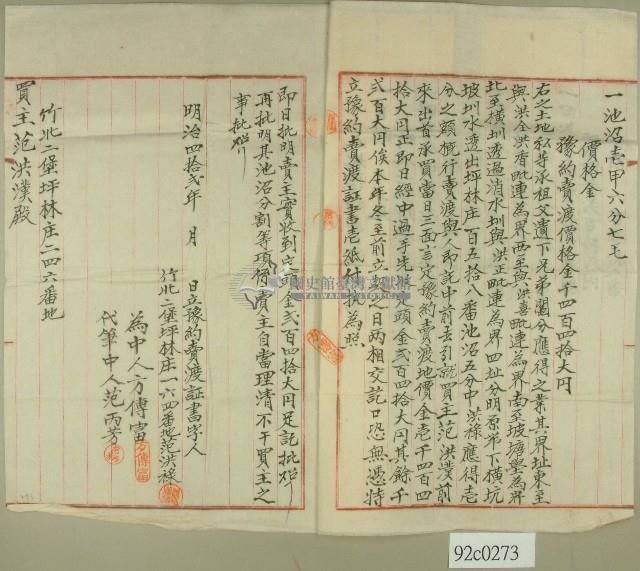 一池沼壱甲六分七毛
價格金
豫約賣渡價格金千四百四拾大円
右之土地私等承祖父遺下兄弟鬮分應得之業其界址東至
與洪全洪濟毗連為界西至與洪喜毗連為界南至坡塘墾為界
北至橫圳透過消水圳與洪正毗連為界四址分明原帶下橫坑
坡圳水透出坪林庄一百五拾八番池沼五分中洪祿應得壱
分之額概行賣渡與人即託中前去引就買主范洪漢前
來出首承買當日三面言定豫約賣渡地價金壱千四百四
拾大円正即日經中過手先定頭金弍百四拾大円其餘千
弍百大円俟本年冬至前立契之日兩相交訖口恐無憑特
立豫約賣渡証書壱紙付執為照
即日批明賣主實收到定頭金弍百四拾大円足訖批炤
再批明其池沼分割等項係賣主自當理清不干買主之
事批炤
明治四拾弍年 月 日立豫約賣渡証書字人
竹北二堡坪林庄一六四番地范洪祿
為中人方傳富
代筆中人范丙芳
竹北二堡坪林庄二四六番地
買主范洪漢殿
國史館臺灣文獻館
TAIWAN HISTORICA
92c0273